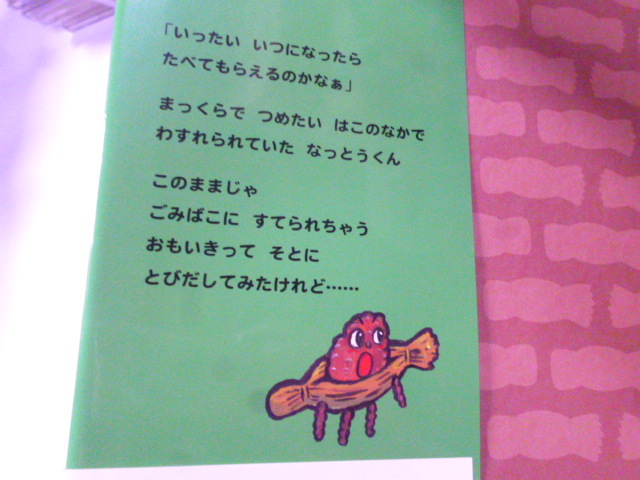 「いったい いつになったら
たべてもらえるのかなぁ」
まっくらで つめたい はこのなかで
わすれられていた なっとうくん
このままじゃ
ごみばこに すてられちゃう
おもいきって そとに
とびだしてみたけれど……